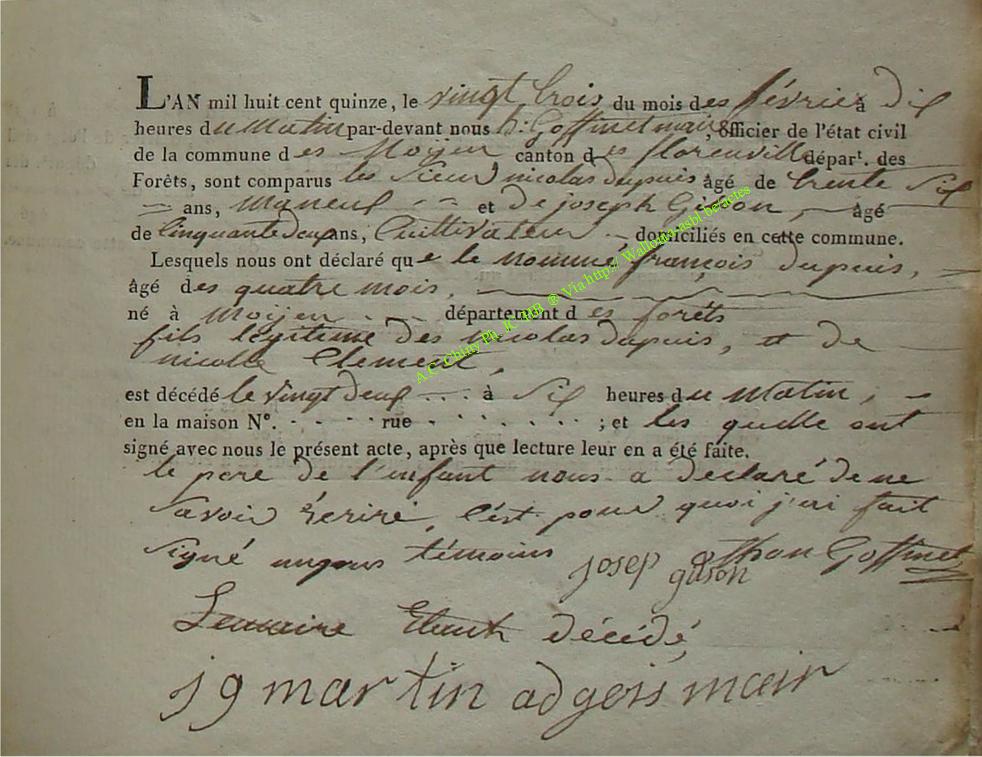 L'AN mil huit cent quinze, le vingt trois du mois des février à dix
heures du Matin par-devant nous h: Goffinet mair, officier de l'état civil
de la commune des Moijen canton des florenville départ. des
Forêts, sont comparus les Sieur nicolas dupuis âgé de trente Six
ans, et de joseph Gison, âgé
de Cinquante deux ans, Cultivateur domiciliés en cette commune.
Lesquels nous ont déclaré que le nommé françois dupuis,
âgé des quatre mois,
né à Moijen département des forêts
fils légitime des nicolas dupuis, et de
nicolle Clement,
est décédé le vingt deux à Six heures du Matin,
en la maison N°. rue ; et les quelle ont
signé avec nous le présent acte, après que lecture leur en a été faite.
le pere de l'enfant nous a déclaré de ne
savoir écrire, C'est pour quoi j'ai fait
Signé témoins josep gison Goffinet
Lemaire Etant décédé
19 martin adgois mair
A.C. Chiny Ph. JC MB ® Via http:// Wallonia-asbl.be/actes